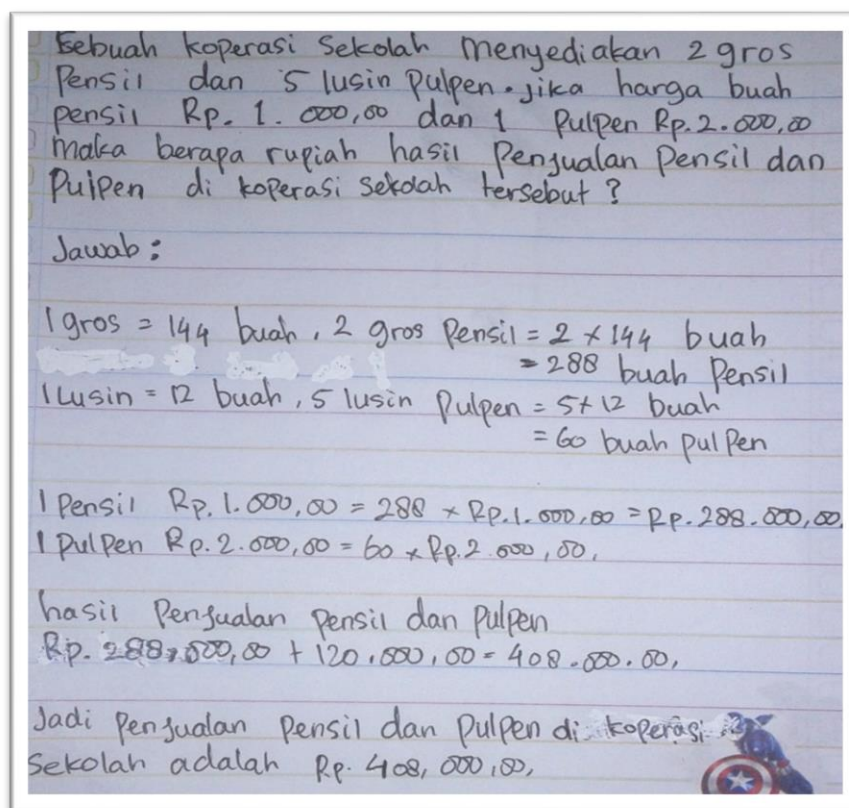 Sebuah koperasi Sekolah menyediakan 2 gros
Pensil dan 5 lusin Pulpen. jika harga buah
pensil Rp. 1.000,00 dan 1 Pulpen Rp. 2.000,00
maka berapa rupiah hasil Penjualan Pensil dan
Pulpen di koperasi sekolah tersebut ?
Jawab :
1 gros = 144 buah, 2 gros Pensil = 2 x 144 buah
= 288 buah Pensil
1 Lusin = 12 buah, 5 lusin Pulpen = 5 x 12 buah
= 60 buah pulPen
1 Pensil Rp. 1.000,00 = 288 x Rp. 1.000,00 = Rp. 288.000,00.
1 PulPen Rp. 2.000,00 = 60 x Rp. 2.000,00.
hasil Penjualan pensil dan pulpen
Rp. 288.000,00 + 120.000,00 = 408.000.00,
Jadi Penjualan Pensil dan Pulpen di koperasi
Sekolah adalah Rp. 408,000,00,